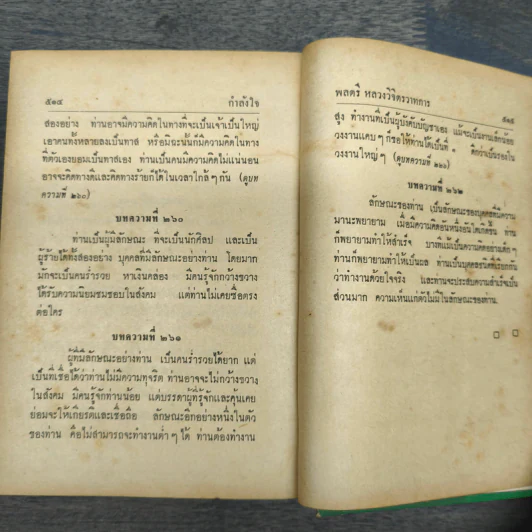 ๕๑๔ กำลังใจ
สองอย่าง ท่านอาจมีความคิดในทางที่จะเป็นเจ้าเป็นใหญ่
เอาคนทั้งหลายลงเป็นทาส หรือมิฉะนั้นก็มีความคิดในทาง
ที่ตัวเองยอมเป็นทาสเอง ท่านเป็นคนมีความคิดไม่แน่นอน
อาจจะคิดทางดีและคิดทางร้ายก็ได้ในเวลาใกล้ ๆ กัน (ดูบท
ความที่ ๒๖๐)
บทความที่ ๒๖๐
ท่านเป็นผู้มีลักษณะ ที่จะเป็นนักศิลป และเป็น
ผู้ร้ายได้ทั้งสองอย่าง บุคคลที่มีลักษณะอย่างท่าน โดยมาก
มักจะเป็นคนร่ำรวย หาเงินคล่อง มีคนรู้จักกว้างขวาง
ได้รับความนิยมชมชอบในสังคม แต่ท่านไม่เคยซื่อตรง
ต่อใคร
บทความที่ ๒๖๑
ผู้ที่มีลักษณะอย่างท่าน เป็นคนร่ำรวยได้ยาก แต่
เป็นที่เชื่อได้ว่าท่านไม่มีความทุจริต ท่านอาจจะไม่กว้างขวาง
ในสังคม มีคนรู้จักท่านน้อย แต่บรรดาผู้ที่รู้จักและคุ้นเคย
ย่อมจะให้เกียรติและเชื่อถือ ลักษณะอีกอย่างหนึ่งในตัว
ของท่าน คือไม่สามารถจะทำงานต่ำ ๆ ได้ ท่านต้องทำงาน
พลตรี หลวงวิจิตรวาทการ ๕๑๕
สูง ทำงานที่เป็นผู้บังคับบัญชาเอง แม้จะเป็นงานเล็กน้อย
วงงานแคบ ๆ ก็ขอให้ท่านได้เป็นที่ ๑ ดีกว่าเป็นรองใน
วงงานใหญ่ ๆ (ดูบทความที่ ๒๖๐)
บทความที่ ๒๖๒
ลักษณะของท่าน เป็นลักษณะของบุคคลที่มีความ
มานะพยายาม เมื่อมีความคิดอันหนึ่งอันใดเกิดขึ้น ท่าน
ก็พยายามทำให้สำเร็จ บางทีแม้เป็นความคิดอย่างเด็ก ๆ
ท่านก็พยายามทำให้เป็นผล ท่านเป็นบุคคลชนิดที่เรียกกัน
ว่าทำงานด้วยใจจริง และท่านจะประสบความสำเร็จเป็น
ส่วนมาก ความเห็นแก่ตัวไม่มีในลักษณะของท่าน.